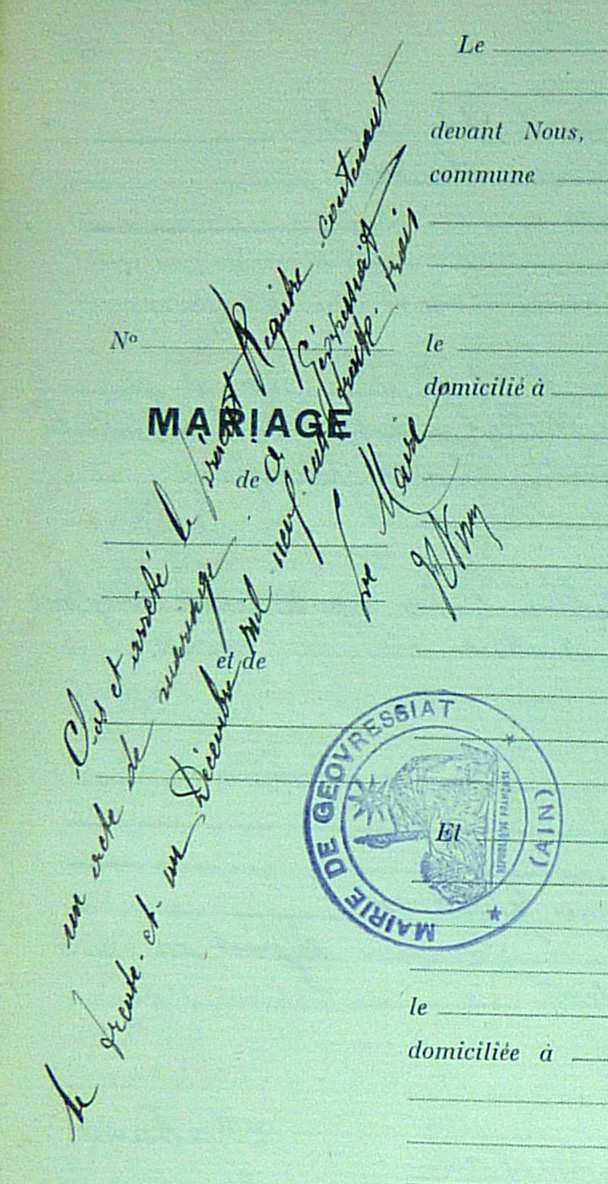 Le
devant Nous,
commune
No
MARIAGE
de
et de
le
domicilié à
Clos et arrêté le présent Registre contenant
un acte de mariage. A Géovressiat
le trente-et-un Décembre mil neuf cent trente-trois
Le Maire
MAIRIE DE GEOVRESSIAT
(AIN)
REPUBLIQUE FRANÇAISE
Et
le
domiciliée à